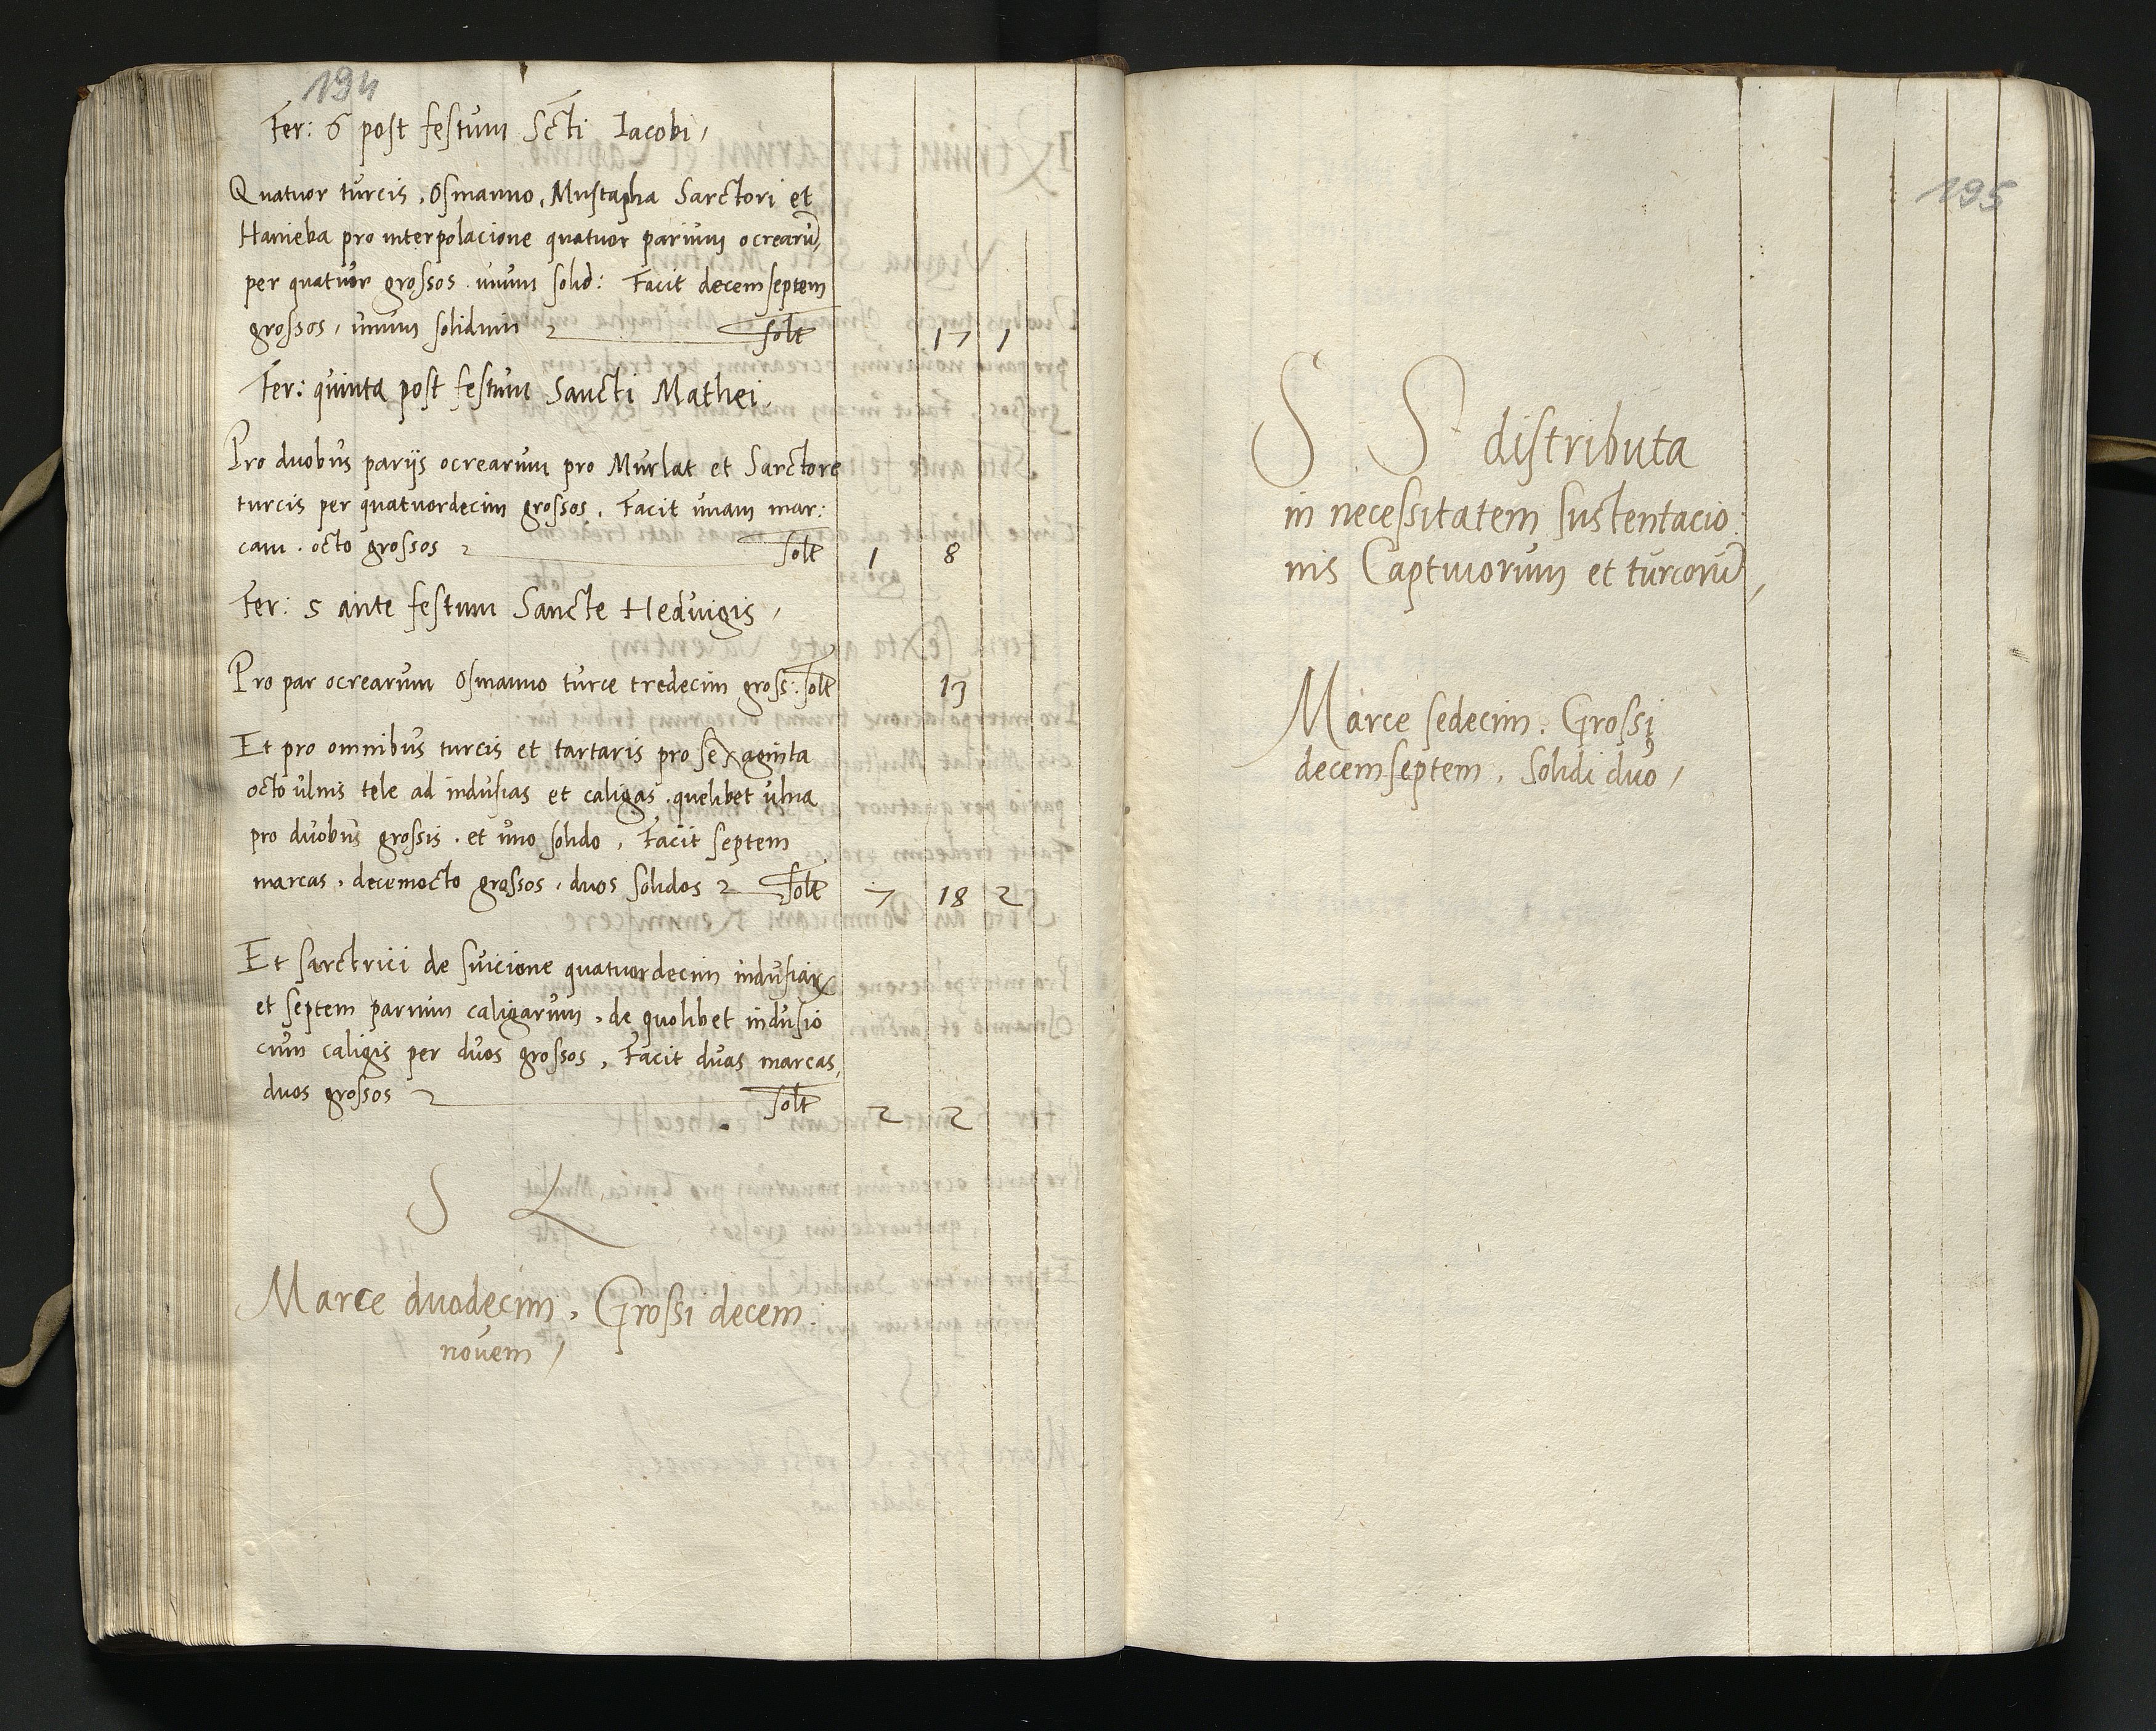 194
Fer: 6 post festum Scti Iacobi,
Quatuor turcis, Osmanno, Mustapha Sarctori et
Hanieba pro interpolacione quatuor parium ocrearū,
per quatuor grossos. unum solid: Facit decemseptem
grossos, unum solidum solt 17 1
Fer: quinta post festum Sancti Mathei,
Pro duobus parijs ocrearum pro Murlat et Sarctore
turcis per quatuordecim grossos, Facit unam mar:
cam. octo grossos solt 1 8
Fer: 5 ante festum Sancte Hedvigis,
Pro par ocrearum Osmanno turce tredecim gross: solt 13
Et pro omnibus turcis et tartaris pro sexaginta
octo ulnis tele ad indusias et caligas, quelibet ulna
pro duobus grossis. et uno solido, Facit septem
marcas, decemocto grossos, duos solidos solt 7 18 2
Et sarctrici de suicione quatuordecim indusiar
et septem parium caligarum, de quolibet indusio
cum caligis per duos grossos, Facit duas marcas,
duos grossos solt 2 2
S L
Marce duodecim, Grossi decem:
novem,
195
S. S. distributa
in necessitatem sustentacio:
nis Captivorum et turcorū,
Marce sedecim. Grossi
decemseptem, Solidi duo,